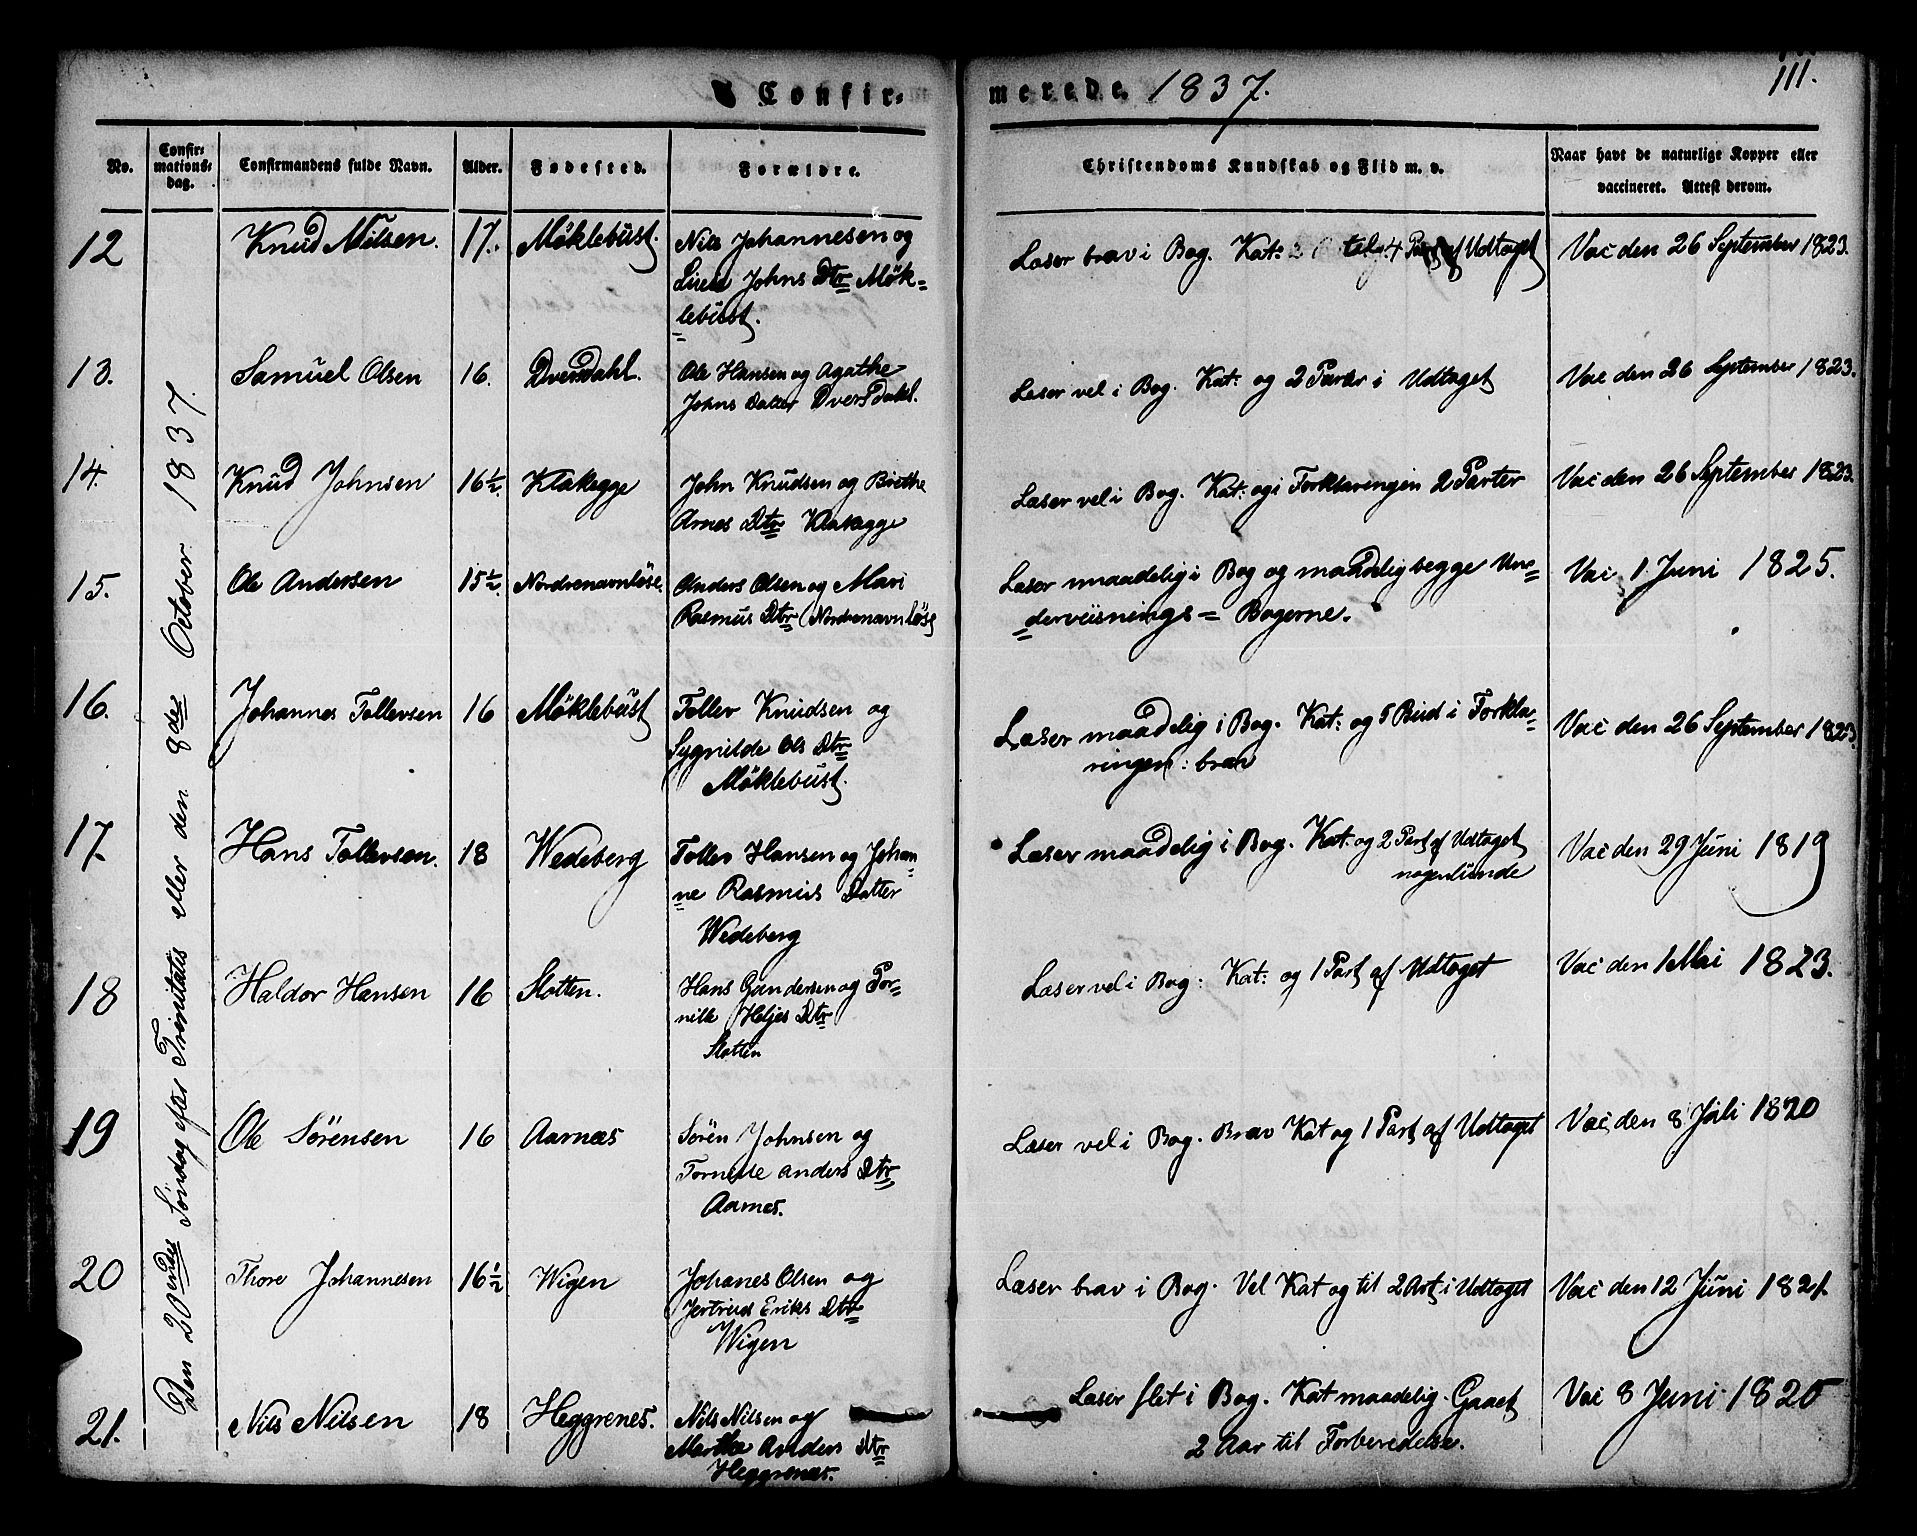 Confir-
merede, 1837.
111.
No.
Confir-
mations-
dag.
Confirmandens fulde Navn.
Alder.
Fødested.
Forældre.
Christendoms Kundskab og Flid m. v.
Naar havt de naturlige Kopper eller
vaccineret. Attest derom.
Den 20endes Søndag efter Trinitatis eller den 8des October 1837.
12 Knud Nilsen. 17. Møklebust. Nils Johannesen og
Johns Dtr Møk=
=lebust.
Læser brav i Bog. Kat: til 4 Part af Udtoget
Vac den 26 September 1823.
13. Samuel Olsen 16. Dversdahl. Ole Hansen og Agathe
Johns Datter Dversdahl.
Læser vel i Bog. Kat: og 2 Parter i Udtoget
Vac den 26 September 1823.
14. Knud Johnsen 16½. Klakegge John Knudsen og Brethe
Arnes Dtr Klakegge
Læser vel i Bog. Kat: og i Forklaringen 2 Parter
Vac den 26 September 1823.
15. Ole Andersen 15½ Nordrenavnløse. Anders Olsen og Mari
Rasmus Dtr Nordrenavnløse
Læser maadelig i Bog og maadelig begge Un=
=derviisnings= Bøgerne.
Vac 1 Juni 1825.
16. Johannes Tollevsen 16 Møklebust Tollev Knudsen og
Sygnilde Ols Dtr
Møklebust.
Læser maadelig i Bog. Kat: og 5 Bud i Forkla=
ringen: brav
Vac den 26 September 1823.
17. Hans Tollevsen. 18 Wedeberg Tollev Hansen og Johan=
=ne Rasmus Datter
Wedeberg
Læser maadelig i Bog. Kat: og 2 Part af Udtoget
nogenlunde
Vac den 29 Juni 1819
18 Haldor Hansen 16 Slotten. Hans Gundersen og Por=
nille Heljes Dtr
Slotten
Læser vel i Bog: Kat: og 1 Part af Udtoget
Vac den 1 Mai 1823.
19 Ole Sörensen 16 Aarnæs Sören Johnsen og
Anders Dtr
Aarnes.
Læser vel i Bog. Brav Kat og 1 Part af Udtoget
Vac den 8 Juli 1820
20 Thore Johannesen 16½ Wigen Johanes Olsen og
Jertrud Eriks Dtr
Wigen
Læser brav i Bog. Vel Kat og til 2 Art i Udtoget
Vac den 12 Juni 1821.
21. Nils Nilsen 18 Heggrenes. Nils Nilsen og
Marthe Anders Dtr
Heggrenæs.
Læser slet i Bog. Kat maadelig. Gaaet
2 Aar til Forberedelse.
Vac 8 Juni 1820